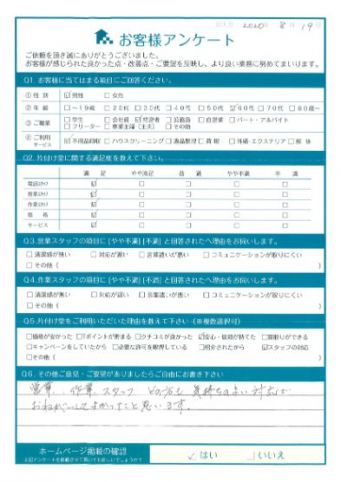 2020 年 8 月 19 日
お客様アンケート
ご依頼を頂き誠にありがとうございました。
お客様が感じられた良かった点・改善点・ご要望を反映し、より良い業務に努めてまいります。
Q1. お客様に当てはまる項目にご回答ください。
① 性 別 ☑男性 □女性
② 年 齢 □～19歳 □20代 □30代 □40代 □50代 ☑60代 □70代 □80歳～
③ ご職業 □学生 □会社員 ☑経営者 □公務員 □自営業 □パート・アルバイト
□フリーター □専業主婦（主夫） □その他
④ ご利用サービス ☑不用品回収 □ハウスクリーニング □遺品整理 □買取 □外構・エクステリア □解体
Q2. 片付け堂に関する満足度を教えて下さい。
満 足 やや満足 普 通 やや不満 不 満
電話対応 ☑ □ □ □ □
営業対応 ☑ □ □ □ □
作業対応 ☑ □ □ □ □
価 格 ☑ □ □ □ □
サービス ☑ □ □ □ □
Q3. 営業スタッフの項目に [やや不満] [不満] と回答された方へ理由をお伺いします。
□清潔感が無い □対応が遅い □言葉遣いが悪い □コミュニケーションが取りにくい
□その他（ ）
Q4. 作業スタッフの項目に [やや不満] [不満] と回答された方へ理由をお伺いします。
□清潔感が無い □対応が遅い □言葉遣いが悪い □コミュニケーションが取りにくい
□その他（ ）
Q5. 片付け堂をご利用いただいた理由を教えて下さい（※複数選択可）
□価格が安かった □Tポイントが貯まる □クチコミが良かった ☑安心・信頼が持てた □買取りができる
□キャンペーンをしていたから □必要な許可を取得している □紹介されたから ☑スタッフの対応
□その他（ ）
Q6. その他ご意見・ご要望がありましたらご自由にお書き下さい
営業、作業スタッフ どの方も気持ちのよい対応で
おねがいしてよかったと思います。
ホームページ掲載の確認
✓はい □いいえ